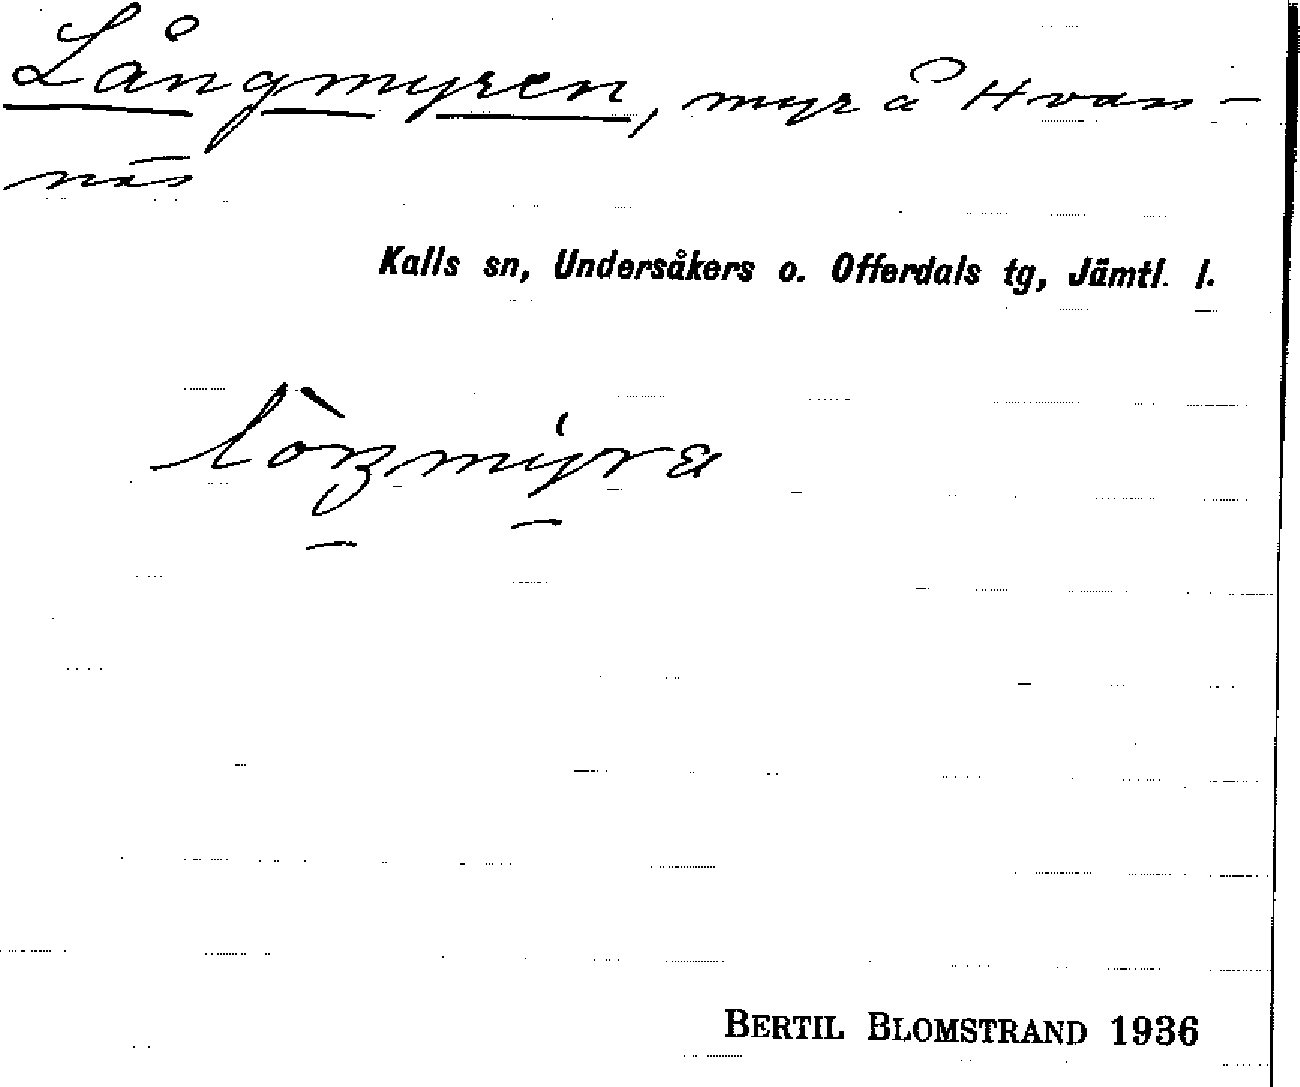 Långmyren, myr å Hvass-
näs
Kalls sn, Undersåkers o. Offerdals tg, Jämtl. l.
BERTIL BLOMSTRAND 1936